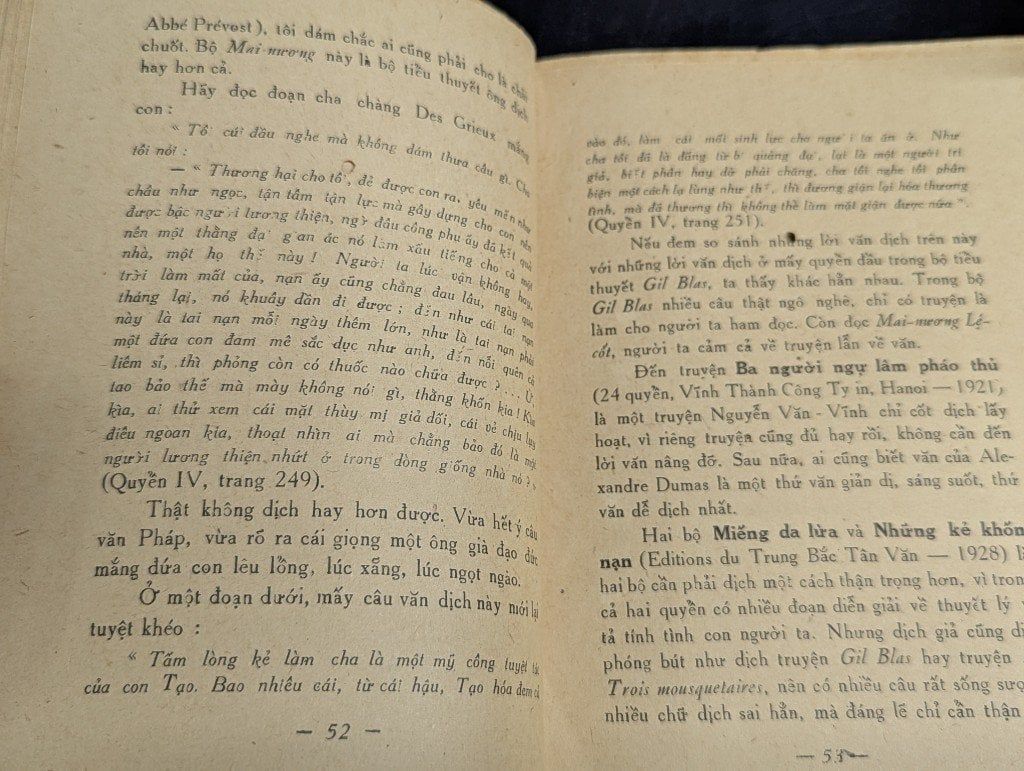 Abbé Prévost), tôi dám chắc ai cũng phải cho là chải
chuốt. Bộ Mai-nương này là bộ tiểu thuyết ông dịch
hay hơn cả.
Hãy đọc đoạn cha chàng Des Grieux mắng
con :
“ Tôi cúi đầu nghe mà không dám thưa câu gì. Cha
tôi nói :
— “ Thương hại cho tôi, đẻ được con ra, yêu mến như
châu như ngọc, tận tâm tận lực mà gây dựng cho con nên
được bậc người lương thiện, ngờ đâu công phu ấy đã kết quả
nên một thằng đại gian ác nó làm xấu tiếng cho cả một
nhà, một họ thế này ! Người ta lúc vận không hay,
trời làm mất của, nạn ấy cũng chẳng đau lâu, ngày qua
tháng lại, nó khuây dần đi được ; đến như cái tai nạn
này là tai nạn mỗi ngày thêm lớn, như là tai nạn phải
một đứa con đam mê sắc dục như anh, đến nỗi quên cả
liêm sỉ, thì phỏng còn có thuốc nào chữa được ?... Ừ,
tao bảo thế mà mày không nói gì, thằng khốn kia ! Kìa
kìa, ai thử xem cái mặt thùy mị giả dối, cái vẻ chịu lụy
điều ngoan kia, thoạt nhìn ai mà chẳng bảo đó là một
người lương thiện nhứt ở trong dòng giống nhà nó ? »
(Quyển IV, trang 249).
Thật không dịch hay hơn được. Vừa hết ý câu
văn Pháp, vừa rõ ra cái giọng một ông già đạo đức
mắng đứa con lêu lổng, lúc xẵng, lúc ngọt ngào.
Ở một đoạn dưới, mấy câu văn dịch này mới lại
tuyệt khéo :
“ Tấm lòng kẻ làm cha là một mỹ công tuyệt
của con Tạo. Bao nhiêu cái, từ cái hậu, Tạo hóa đem cả
— 52 —
vào đó, làm cái mối sinh lực cho người ta ăn ở. Như
cha tôi đã là đấng từ bi quảng đại, lại là một người trí
giả, biết phân hay dở phải chăng, cha tôi nghe tôi phân
biện một cách lạ lùng như thế, thì đương giận lại hóa thương
tình, mà đã thương thì không thể làm mặt giận được nữa ”.
(Quyển IV, trang 251).
Nếu đem so sánh những lời văn dịch trên này
với những lời văn dịch ở mấy quyển đầu trong bộ tiểu
thuyết Gil Blas, ta thấy khác hẳn nhau. Trong bộ
Gil Blas nhiều câu thật ngô nghê, chỉ có truyện là
làm cho người ta ham đọc. Còn đọc Mai-nương Lệ-
cốt, người ta cảm cả về truyện lẫn về văn.
Đến truyện Ba người ngự lâm pháo thủ
(24 quyển, Vĩnh Thành Công Ty in, Hanoi — 1921,
là một truyện Nguyễn Văn-Vĩnh chỉ cốt dịch lấy
hoạt, vì riêng truyện cũng đủ hay rồi, không cần đến
lời văn nâng đỡ. Sau nữa, ai cũng biết văn của Ale-
xandre Dumas là một thứ văn giản dị, sáng suốt, thứ
văn dễ dịch nhất.
Hai bộ Miếng da lừa và Những kẻ khốn
nạn (Editions du Trung Bắc Tân Văn — 1928) là
hai bộ cần phải dịch một cách thận trọng hơn, vì tron
cả hai quyển có nhiều đoạn diễn giải về thuyết lý
tả tính tình con người ta. Nhưng dịch giả cũng dị
phóng bút như dịch truyện Gil Blas hay truyện
Trois mousquetaires, nên có nhiều câu rất sống sượ
nhiều chữ dịch sai hẳn, mà đáng lẽ chỉ cần thận
— 53 —